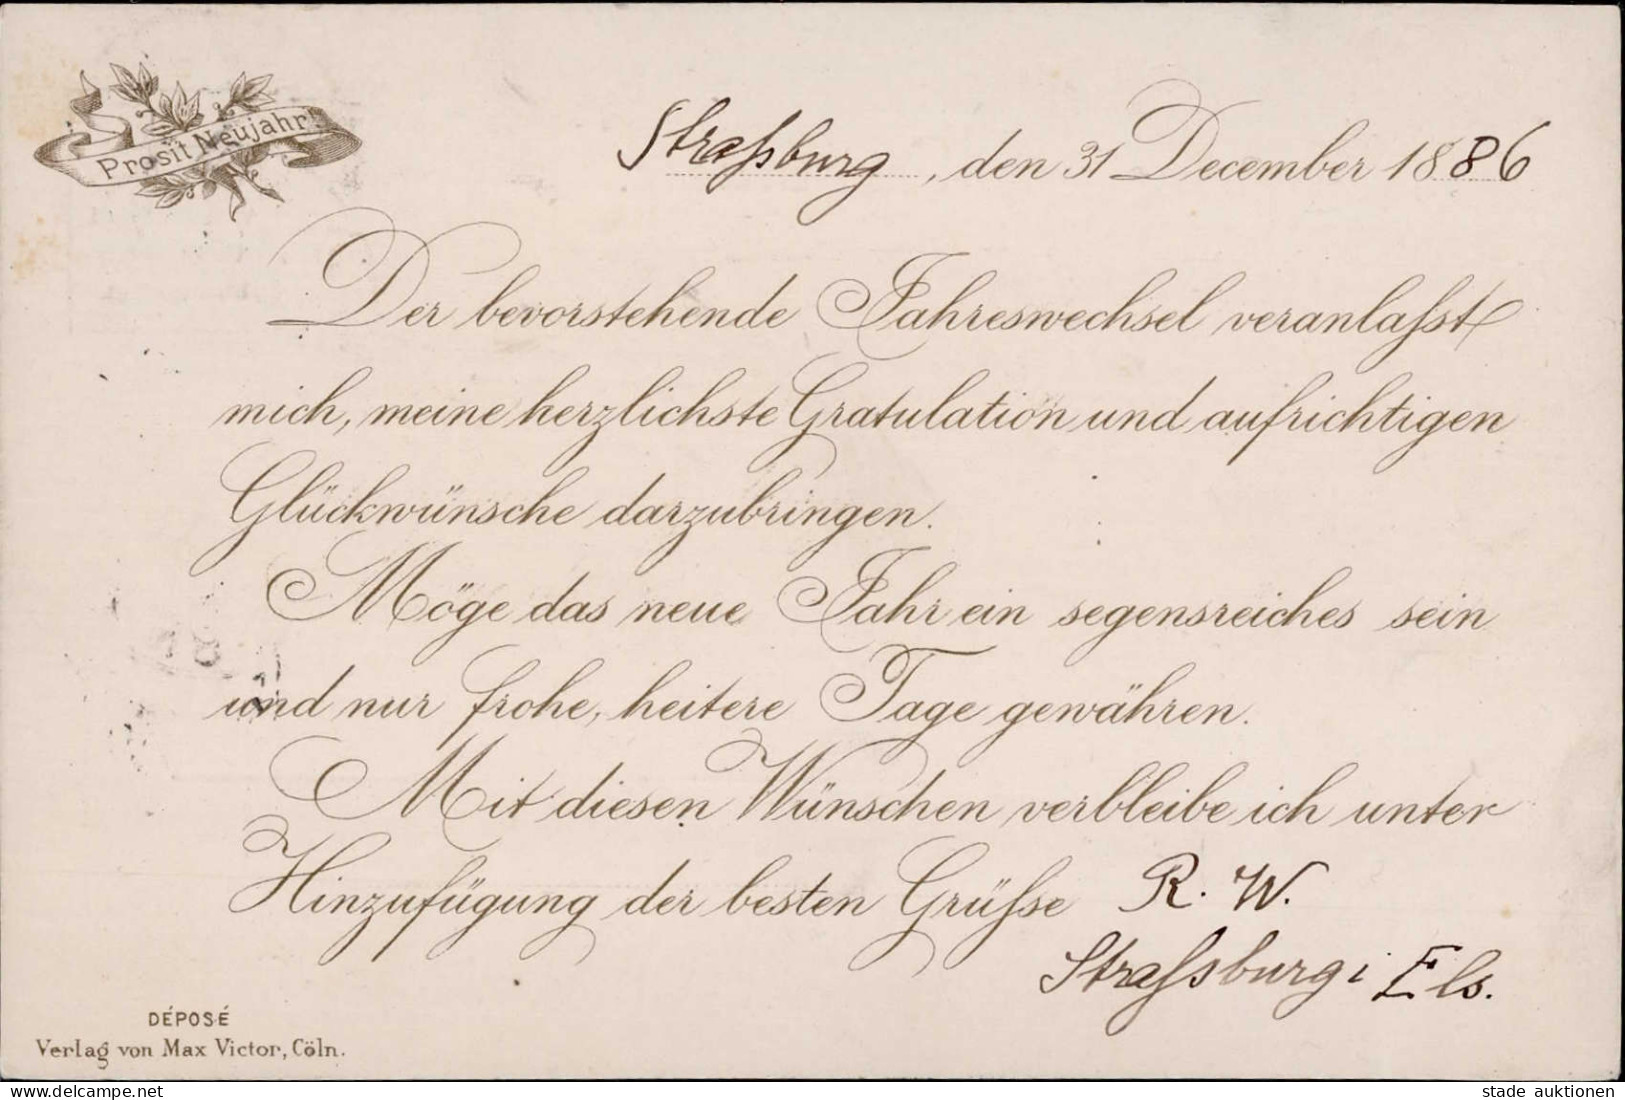 Prosit Neujahr!
Straßburg, den 31 December 1886
Der bevorstehende Jahreswechsel veranlaßt
mich, meine herzlichste Gratulation und aufrichtigen
Glückwünsche darzubringen.
Möge das neue Jahr ein segensreiches sein
und nur frohe, heitere Tage gewähren.
Mit diesen Wünschen verbleibe ich unter
Hinzufügung der besten Grüße R. W.
Straßburg i Els.
DÉPOSÉ
Verlag von Max Victor, Cöln.
https://www.delcampe.net
stade auktionen